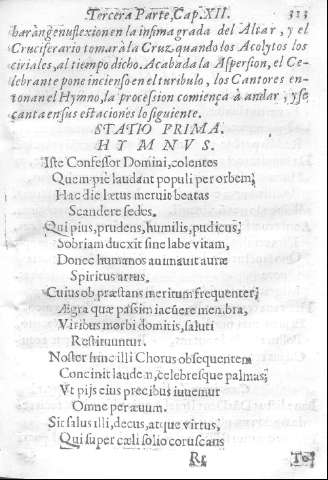 Tercera Parte, Cap. XII. 313
haràn genuflexion en la infima grada del Altar, y el
Cruciferario tomarà la Cruz, quando los Acolytos los
ciriales, al tiempo dicho. Acabada la Aspersion, el Ce-
lebrante pone incienso en el turibulo, los Cantores en-
tonan el Hymno, la procession comiença à andar, y se
canta en sus estaciones lo siguiente.
STATIO PRIMA.
HYMNUS.
Iste Confessor Domini, colentes
Quem piè laudant populi per orbem;
Hac die lætus meruit beatas
Scandere sedes.
Qui pius, prudens, humilis, pudicus;
Sobriam duxit sine labe vitam,
Donec humanos animavit auræ
Spiritus artus.
Cuius ob præstans meritum frequenter;
Ægra quæ passim iacuere membra,
Viribus morbi domitis, saluti
Restituuntur.
Noster hinc illi Chorus obsequentem
Concinit laudem, celebresque palmas;
Vt pijs eius precibus iuuemur
Omne per æuum.
Sit salus illi, decus, atque virtus;
Qui super cæli solio coruscans
Rr To-